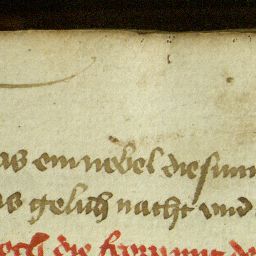 as ein nebel die sunn
as gelich nacht vnd
die